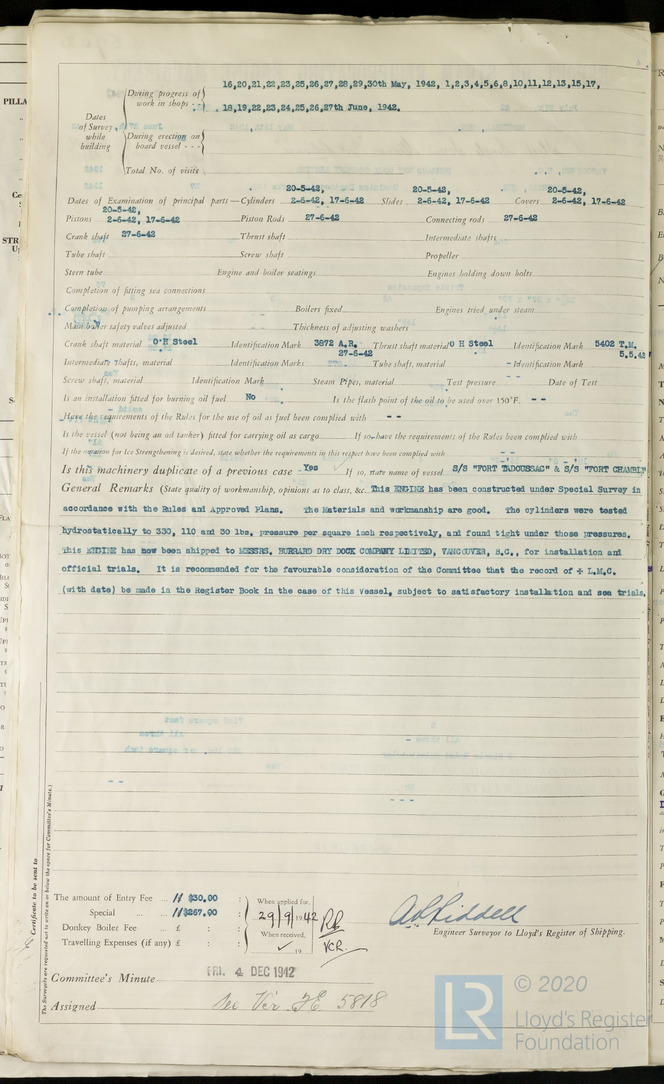 Dates of Survey while building
During progress of work in shops - - 16,20,21,22,23,25,26,27,28,29,30th May, 1942, 1,2,3,4,5,6,8,10,11,12,13,15,17,
18,19,22,23,24,25,26,27th June, 1942.
During erection on board vessel - - -
Total No. of visits
20-5-42, 20-5-42, 20-5-42,
Dates of Examination of principal parts—Cylinders 2-6-42, 17-6-42 Slides 2-6-42, 17-6-42 Covers 2-6-42, 17-6-42
20-5-42,
Pistons 2-6-42, 17-6-42 Piston Rods 27-6-42 Connecting rods 27-6-42
Crank shaft 27-6-42 Thrust shaft Intermediate shafts
Tube shaft Screw shaft Propeller
Stern tube Engine and boiler seatings Engines holding down bolts
Completion of fitting sea connections
Completion of pumping arrangements Boilers fixed Engines tried under steam
Main boiler safety valves adjusted Thickness of adjusting washers
Crank shaft material O'H Steel Identification Mark 3872 A.R. Thrust shaft material O H Steel Identification Mark 5402 T.M.
27-6-42 5.5.42
Intermediate shafts, material Identification Marks Tube shaft, material - Identification Mark
Screw shaft, material Identification Mark Steam Pipes, material Test pressure - - Date of Test
Is an installation fitted for burning oil fuel No Is the flash point of the oil to be used over 150°F. - -
Have the requirements of the Rules for the use of oil as fuel been complied with - -
Is the vessel (not being an oil tanker) fitted for carrying oil as cargo If so have the requirements of the Rules been complied with
If the notation for Ice Strengthening is desired, state whether the requirements in this respect have been complied with - -
Is this machinery duplicate of a previous case Yes If so, state name of vessel S/S "FORT TADOUSSAC" & S/S "FORT CHAMBLY"
General Remarks (State quality of workmanship, opinions as to class, &c. This ENGINE has been constructed under Special Survey in
accordance with the Rules and Approved Plans. The Materials and workmanship are good. The cylinders were tested
hydrostatically to 330, 110 and 30 lbs. pressure per square inch respectively, and found tight under those pressures.
This ENGINE has now been shipped to MESSRS. BURRARD DRY DOCK COMPANY LIMITED, VANCOUVER, B.C., for installation and
official trials. It is recommended for the favourable consideration of the Committee that the record of + L.M.C.
(with date) be made in the Register Book in the case of this Vessel, subject to satisfactory installation and sea trials.
Certificate to be sent to
(The Surveyors are requested not to write on or below the space for Committee's Minute.)
The amount of Entry Fee .. $30.00 : When applied for,
Special ... $267.00 : 29/9/1942
Donkey Boiler Fee ... £ : When received,
Travelling Expenses (if any) £ : 19
VCR.
Engineer Surveyor to Lloyd's Register of Shipping.
Committee's Minute FRI. 4 DEC 1942
Assigned See Ver. F.E. 5818
LR
© 2020
Lloyd's Register
Foundation